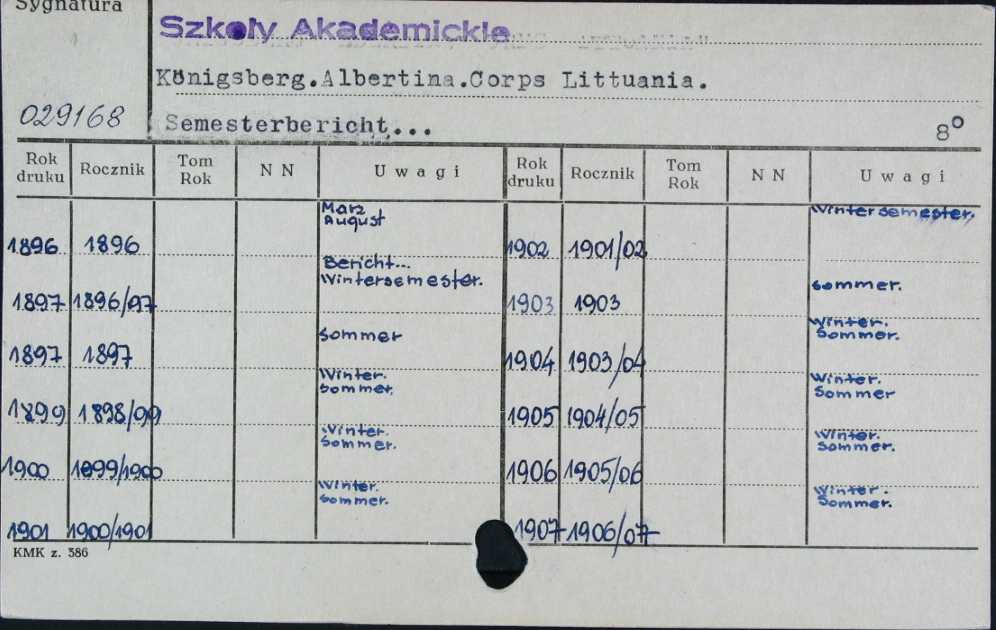 Sygnatura
Szkoły Akademickie
Königsberg.Albertina.Corps Littuania.
029168
Semesterbericht...
8°
Rok druku Rocznik Tom Rok N N Uwagi Rok druku Rocznik Tom Rok N N Uwagi
1896 1896 März August 1902 1901/02 Wintersemester.
1897 1896/97 Bericht... Wintersemester. 1903 1903 Sommer.
1897 1897 Sommer 1904 1903/04 Winter. Sommer.
1899 1898/99 Winter. Sommer. 1905 1904/05 Winter. Sommer
1900 1899/1900 Winter. Sommer. 1906 1905/06 Winter. Sommer.
1901 1900/1901 Winter. Sommer. 1907 1906/07 Winter. Sommer.
KMK z. 386